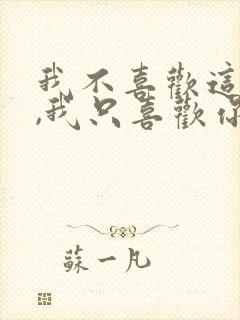 我不喜歡這
,我只喜歡你
蘇一凡